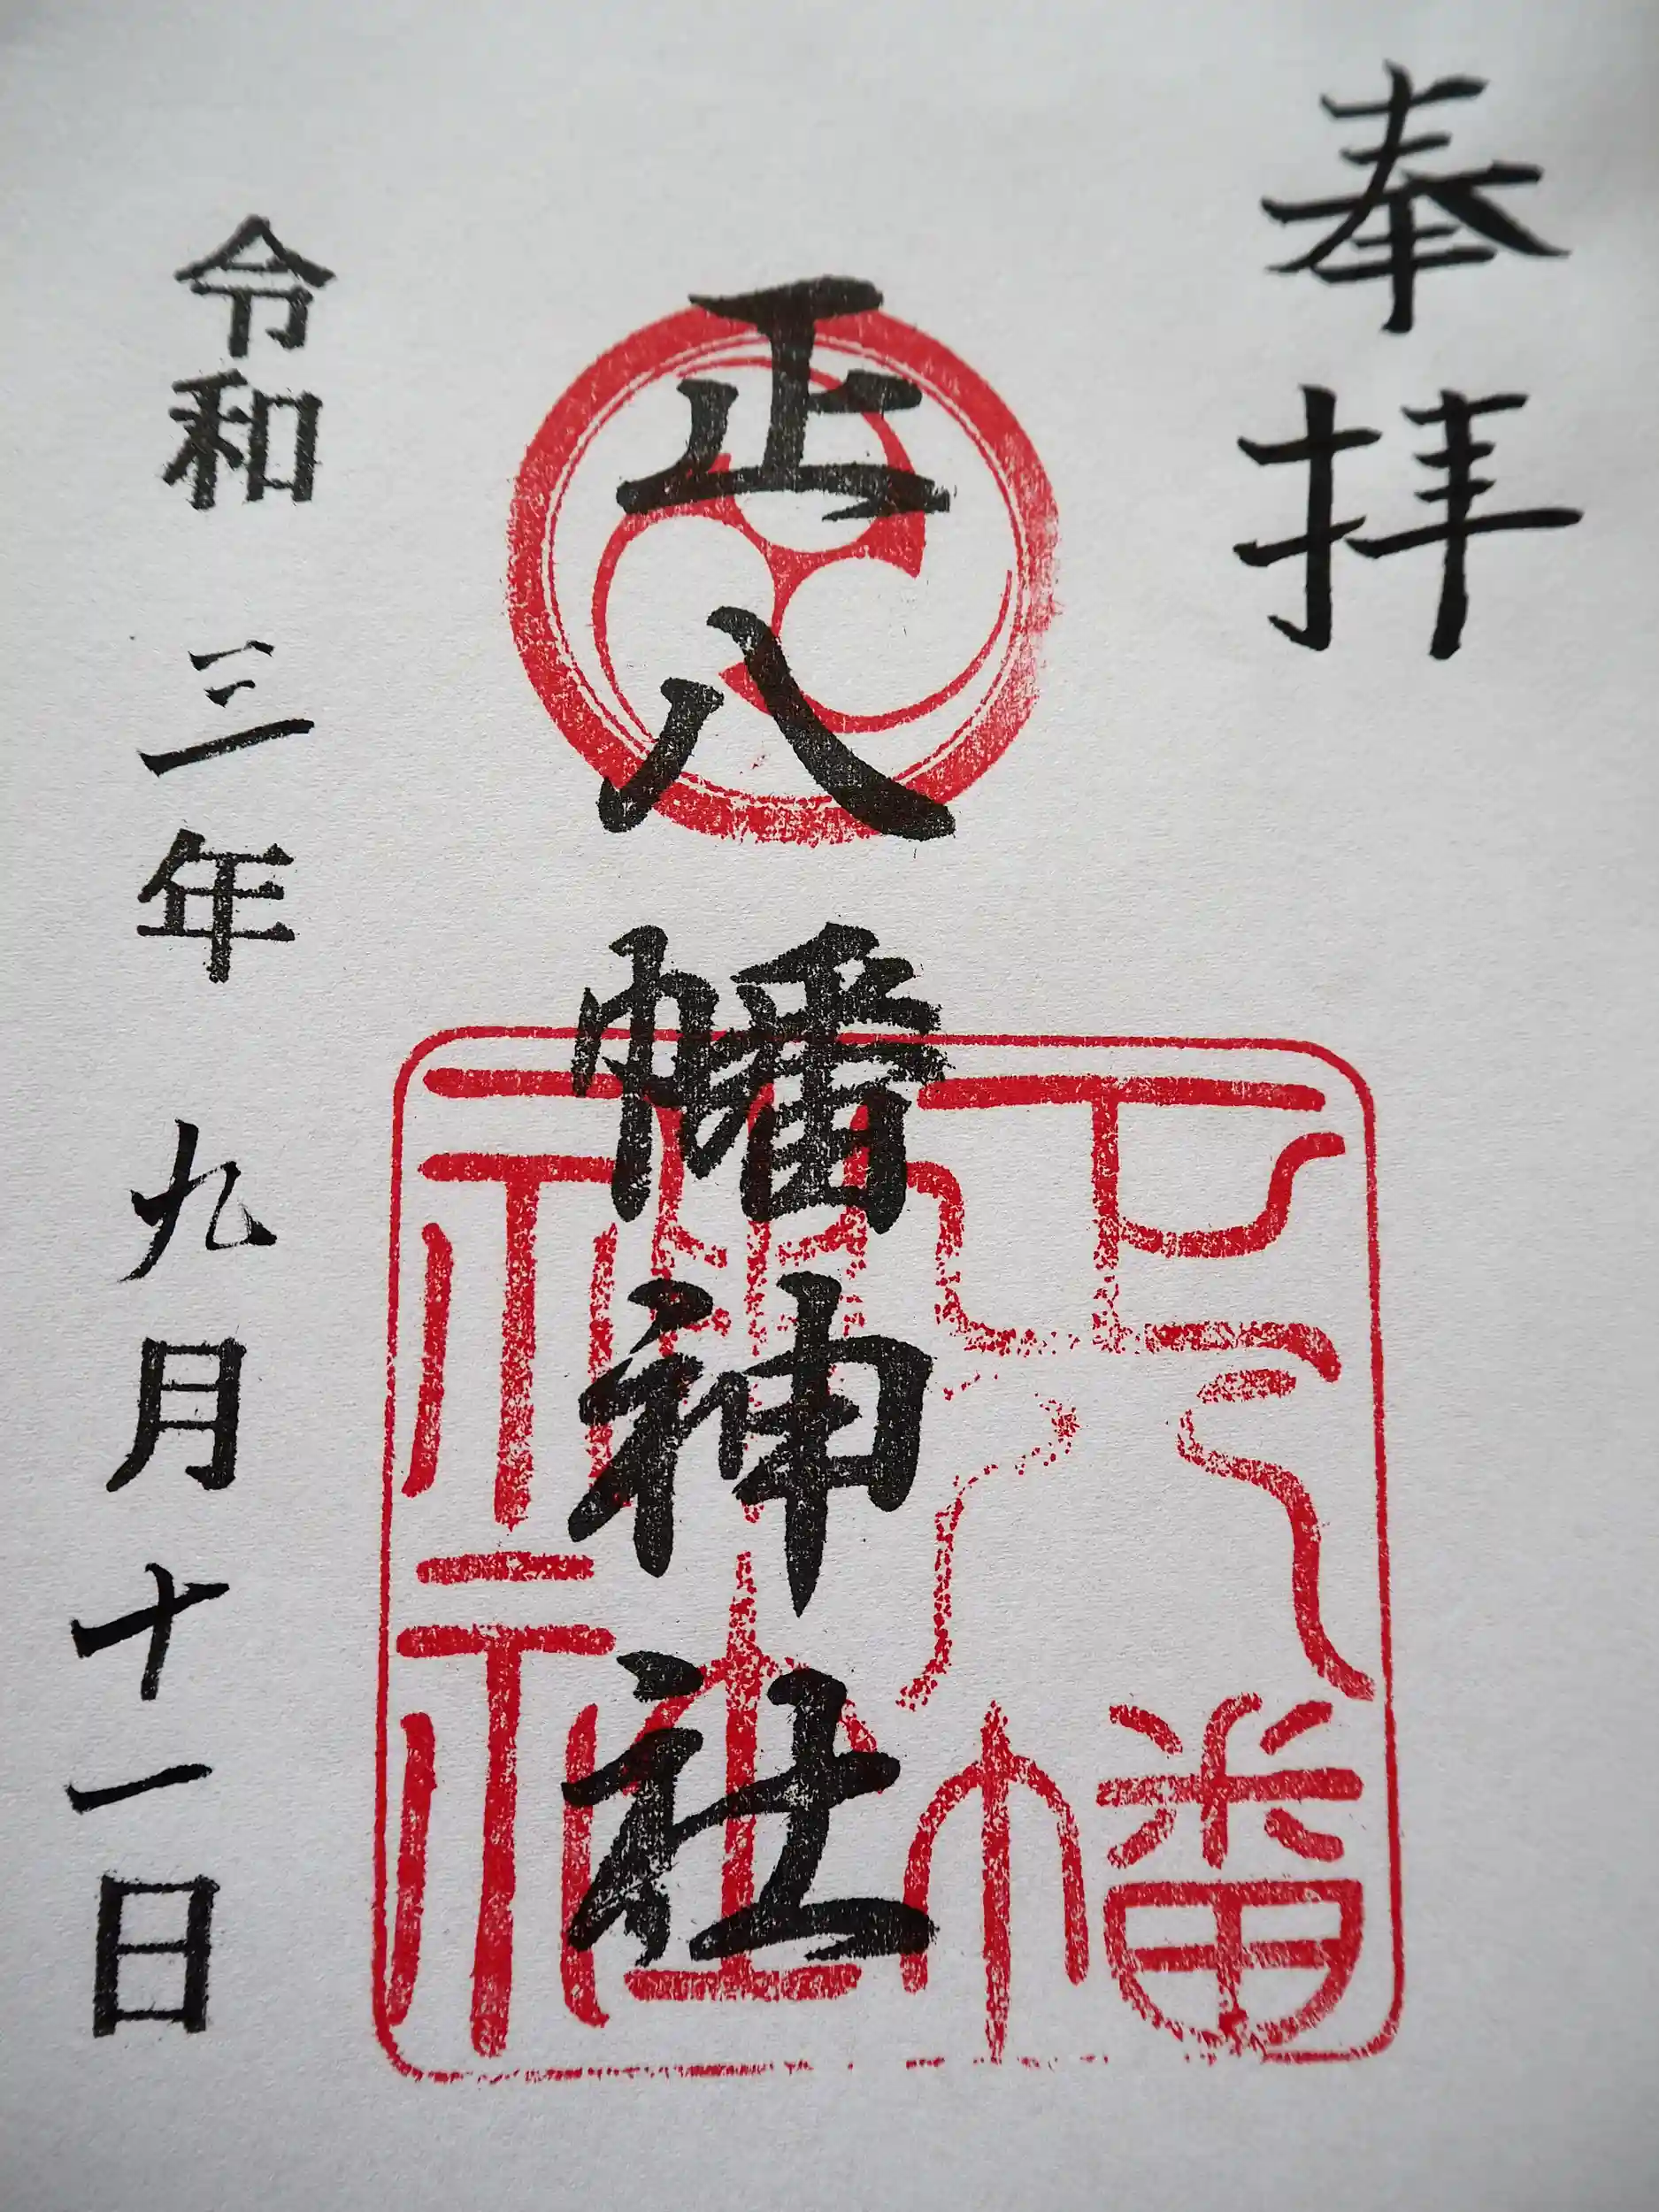 奉拝
正八幡神社
正八幡神社
令和三年九月十一日